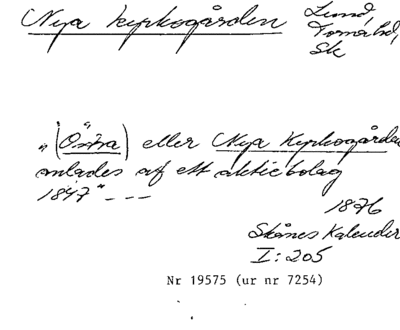 Nya kyrkogården
Lund,
Torna hd,
Sk
"(Östra) eller Nya Kyrkogården
anlades af ett aktiebolag
1847" ---
1876
Skånes Kalender
I:205
Nr 19575 (ur nr 7254)